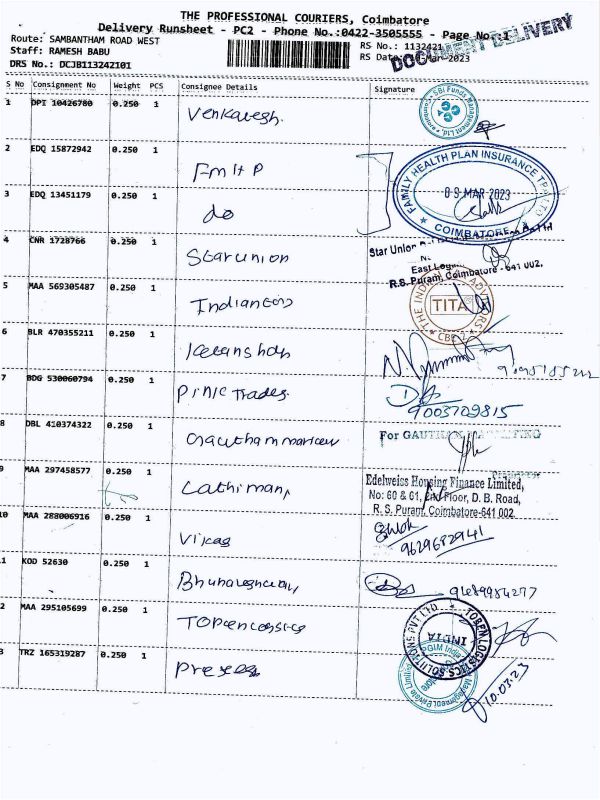 THE PROFESSIONAL COURIERS, Coimbatore
Delivery Runsheet - PC2 - Phone No.:0422-3505555 - Page No: 1
DOCUMENT DELIVERY
Route: SAMBANTHAM ROAD WEST
RS No.: 1132421
Staff: RAMESH BABU
RS Date Mar-2023
DRS No.: DCJB113242101
S No Consignment No Weight PCS Consignee Details Signature
1 DPI 10426780 0.250 1 Venkatesh.
SBI Funds Management Ltd.
2 EDQ 15872942 0.250 1 FmHP
FAMILY HEALTH PLAN INSURANCE TPA LTD
09 MAR 2023
COIMBATORE
3 EDQ 13451179 0.250 1 do
4 CNR 1728766 0.250 1 Star union
Star Union
East Log
R.S. Puram, Coimbatore - 641 002.
5 MAA 569305487 0.250 1
TITA
CBE 2
6 BLR 470355211 0.250 1
7 BDG 530060794 0.250 1 Pink Trades.
9003709815
8 DBL 410374322 0.250 1
For GAUTHAM MARKETING
9 MAA 297458577 0.250 1
Edelweiss Housing Finance Limited,
No: 60 & 61, 2nd Floor, D. B. Road,
R. S. Puram, Coimbatore-641 002.
10 MAA 288006916 0.250 1 Vikas
9629682941
1 KOD 52630 0.250 1
9489984277
2 MAA 295105699 0.250 1
TOBEN LOGISTICS SOLUTIONS PVT LTD
INDIA
3 TRZ 165319287 0.250 1
PGIM India
Management Private Limited
10.03.23